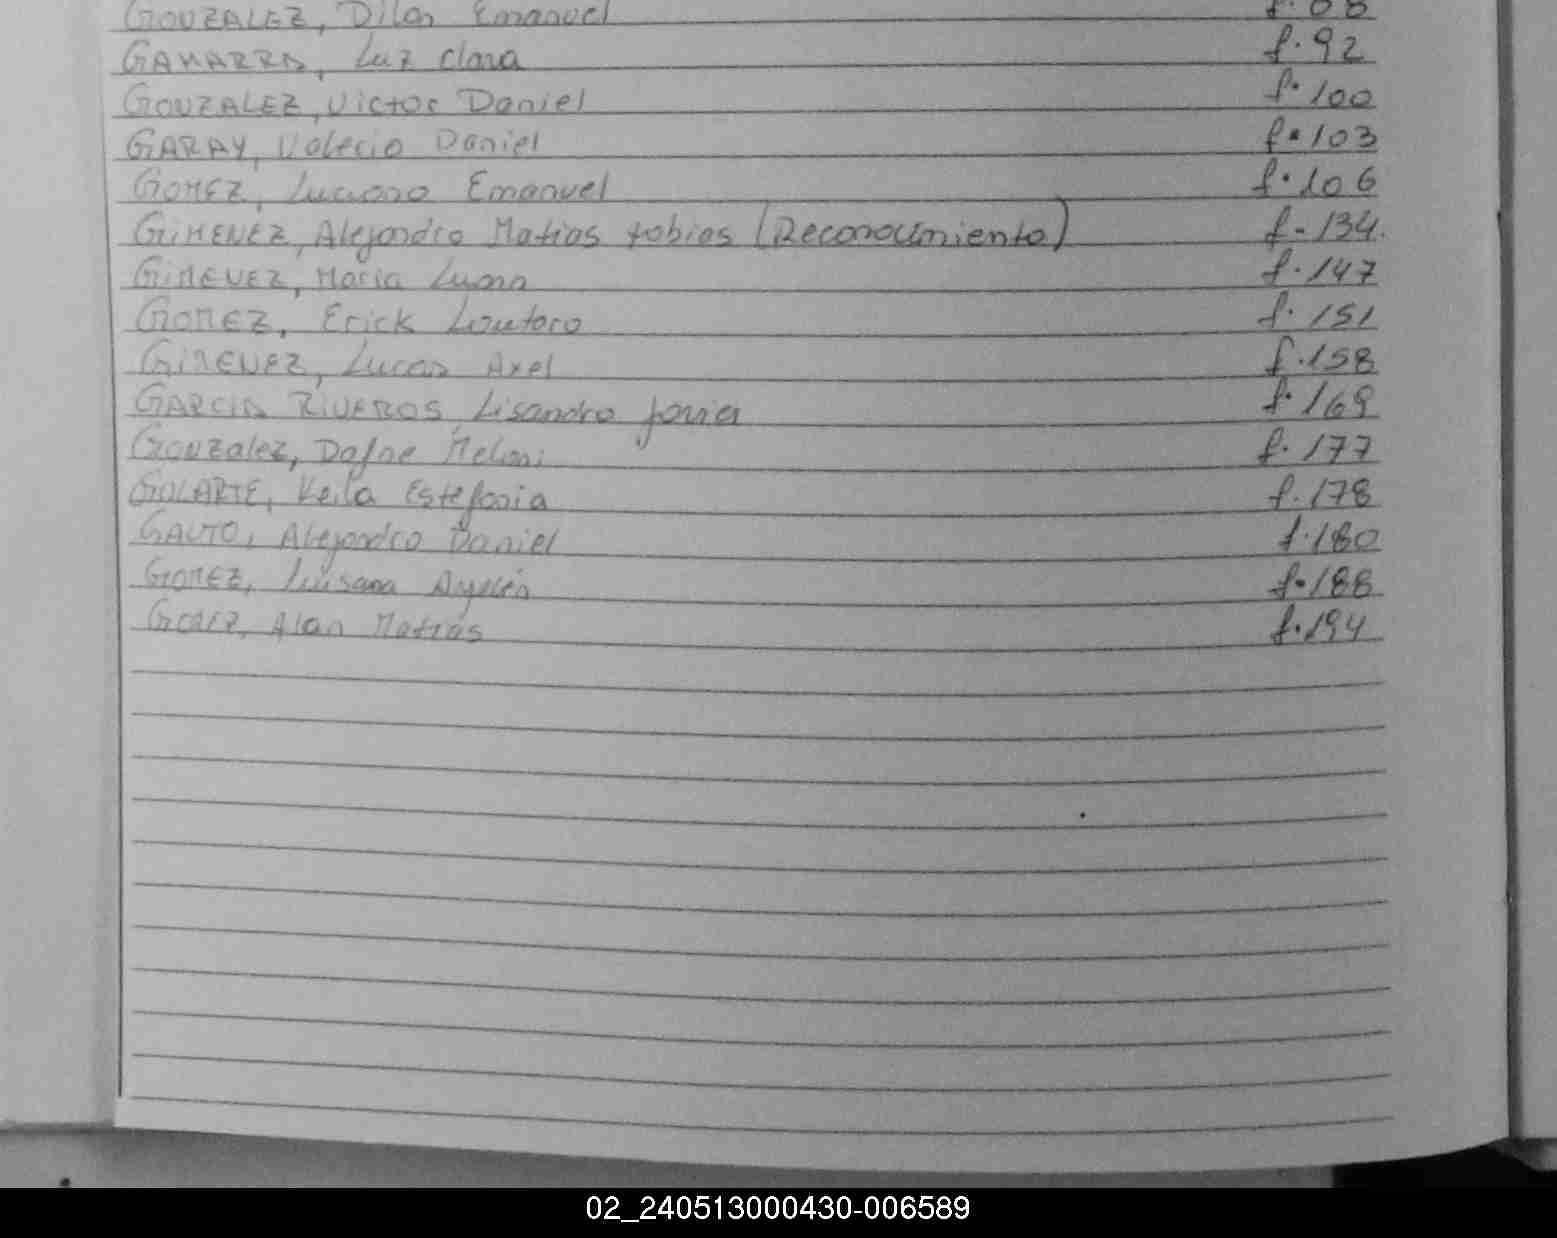 GONZALEZ, Dilan Emanuel f. 88
GAMARRA, Luz Clara f. 92
GONZALEZ, Victor Daniel f. 100
GARAY, Valerio Daniel f. 103
GOMEZ, Luciano Emanuel f. 106
GIMENEZ, Alejandro Matias tobias (Reconocimiento) f - 134.
GIMENEZ, Maria Luana f. 147
GOMEZ, Erick Lautaro f. 151
GIMENEZ, Lucas Axel f. 158
GARCIA RIVEROS, Lisandro Javier f. 169
Gonzalez, Dafne Melani f. 177
GOLARTE, Keila Estefania f. 178
GAUTO, Alejandro Daniel f. 180
GOMEZ, Luisana Ayelén f. 188
Alan Matías f. 194
02_240513000430-006589